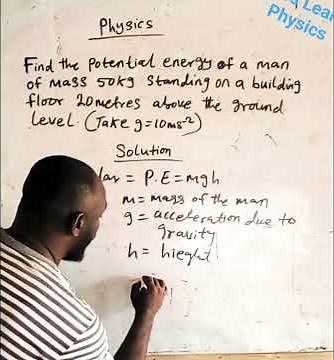 Learn
Physics
Physics
Find the Potential energy of a man
of Mass 50kg standing on a building
floor 20metres above the ground
level. (Take g=10ms⁻²)
Solution
= P.E = mgh
m = mass of the man
g = acceleration due to
gravity
h = hieght